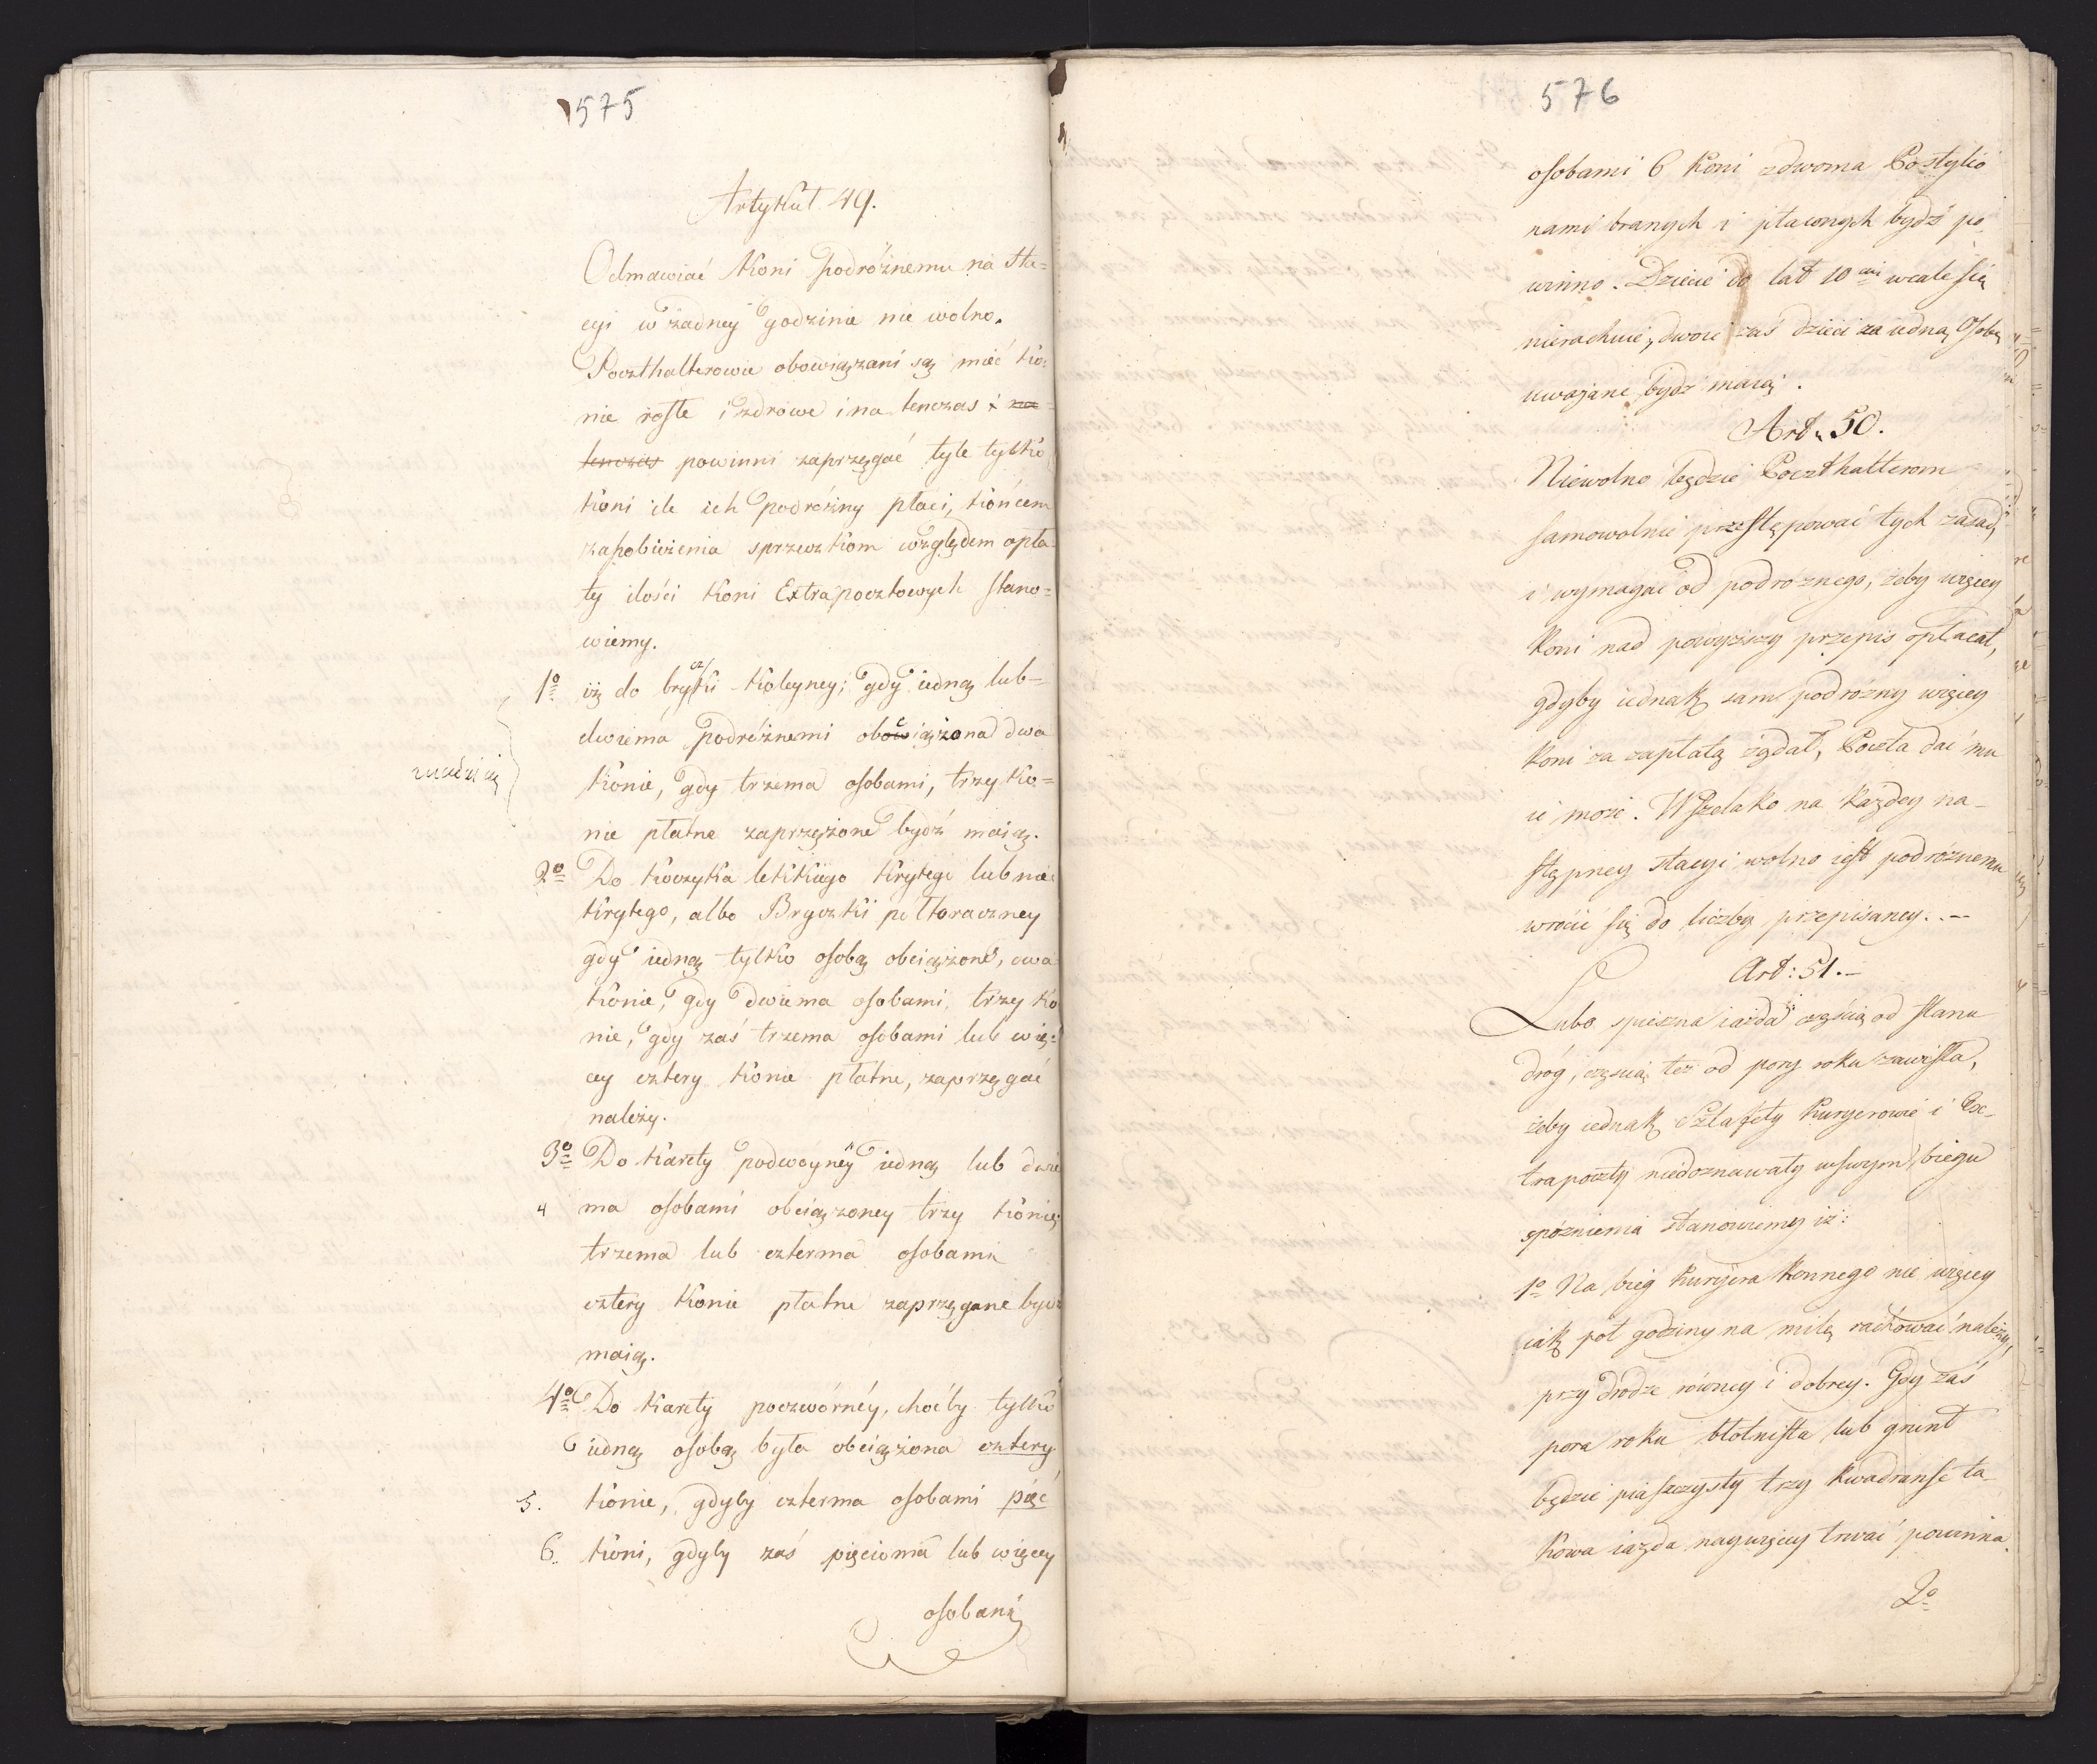 575
Artykuł 49.
Odmawiać Koni podróżnemu na sta=
cyi w żadney godzinie nie wolno.
Poczthalterowie obowiązani są mieć ko=
nie rosłe i zdrowe i na tenczas i na
tenczas powinni zaprzęgać tyle tylko
koni ile ich podróżny płaci, końcem
zapobieżenia sprzeczkom względem opła=
ty ilości Koni Extrapocztowych stano=
wiemy.
1º iż do bryczki koleyney; gdy iedną lub=
dwiema podróżnemi obciążona dwa
konie, gdy trzema osobami, trzy ko=
nie płatne zaprzężone bydź maią.
2º Do koczyka lekkiego krytego lub nie
krytego, albo Bryczki półtoraczney
gdy iedną tylko osobą obciążone, dwa
konie, gdy dwiema osobami, trzy ko
nie, gdy zaś trzema osobami lub wię=
cey cztery konie płatne, zaprzęgać
należy.
3º Do karety podwoyney iedną lub dwie
4 ma osobami obciążoney trzy konie;
trzema lub czterma osobami
cztery konie płatne zaprzęgane bydź
maią.
4º Do karety poczwórnéy, choćby tylko
iedną osobą była obciążona cztery
5. konie, gdyby czterma osobami pięć
6. koni, gdyby zaś pięcioma lub więcey
osobami
576
osobami 6 koni z dwoma Postylio
nami branych i płaconych bydź po
winno. Dziecie do lat 10ciu wcale się
nierachuie, dwoie zaś dzieci za iedną Osobę
uważane bydź maią.
Art. 50.
Niewolno będzie Poczthalterom
samowolnie przestępować tych zasad,
i wymagać od podróżnego, żeby więcey
koni nad powyższy przepis opłacał,
gdyby iednak sam podróżny więcey
koni za zapłatą żądał, Poczta dać mu
ie może. Wszelako na każdey na-
stępney stacyi wolno iest podróżnemu
wrócić się do liczby przepisaney.. -
Art: 51.-
Lubo spieszna iazda częścią od stanu
dróg, częścią też od pory roku zawisła,
żeby iednak Sztafety Kuryerowie i Ex-
trapoczty niedoznawały w swym biegu
spóznienia stanowiemy iż:
1º Na bieg Kuryera konnego nie więcey
iak pół godziny na milę rachować należy,
przy drodze równey i dobrey. Gdy zaś
pora roku błotnista lub grunt
będzie piaszczysty trzy kwadranse ta-
kowa iazda naywięcey trwać powinna.
2º